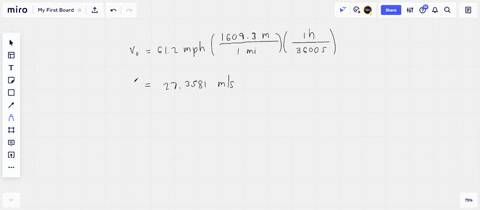 miro My First Board Share
V₀ = 61.2 mph ( 1609.3 m / 1 mi ) ( 1 h / 3600s )
= 27.3581 m/s
75%